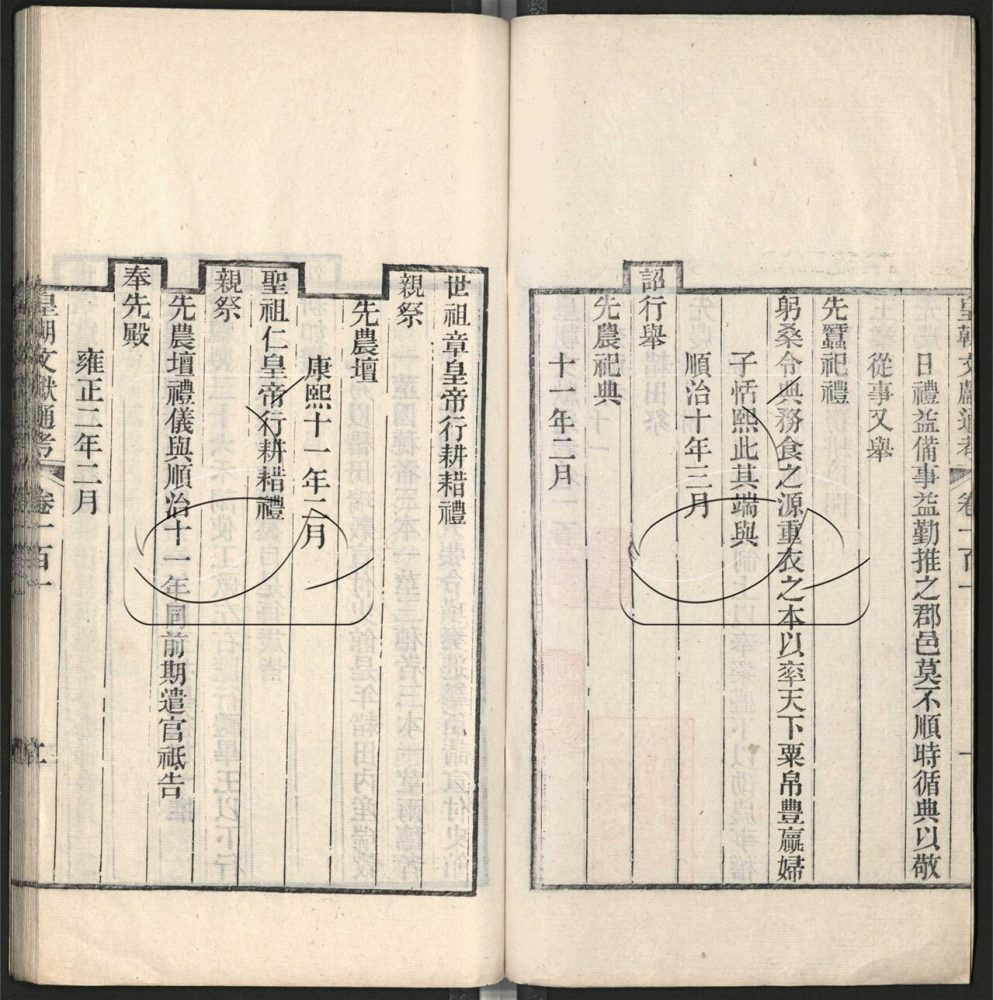 皇朝文獻通考 卷一百一 一
日禮益備事益勤推之郡邑莫不順時循典以敬
從事又舉
先蠶祀禮
躬桑令典務食之源重衣之本以率天下粟帛豐贏婦
子恬熙此其端與
順治十年三月
詔行舉
先農祀典
十一年二月
世祖章皇帝行耕耤禮
親祭
先農壇
康熙十一年二月
聖祖仁皇帝行耕耤禮
親祭
先農壇禮儀與順治十一年同前期遣官祗告
奉先殿
雍正二年二月
皇朝文獻通考 卷一百一